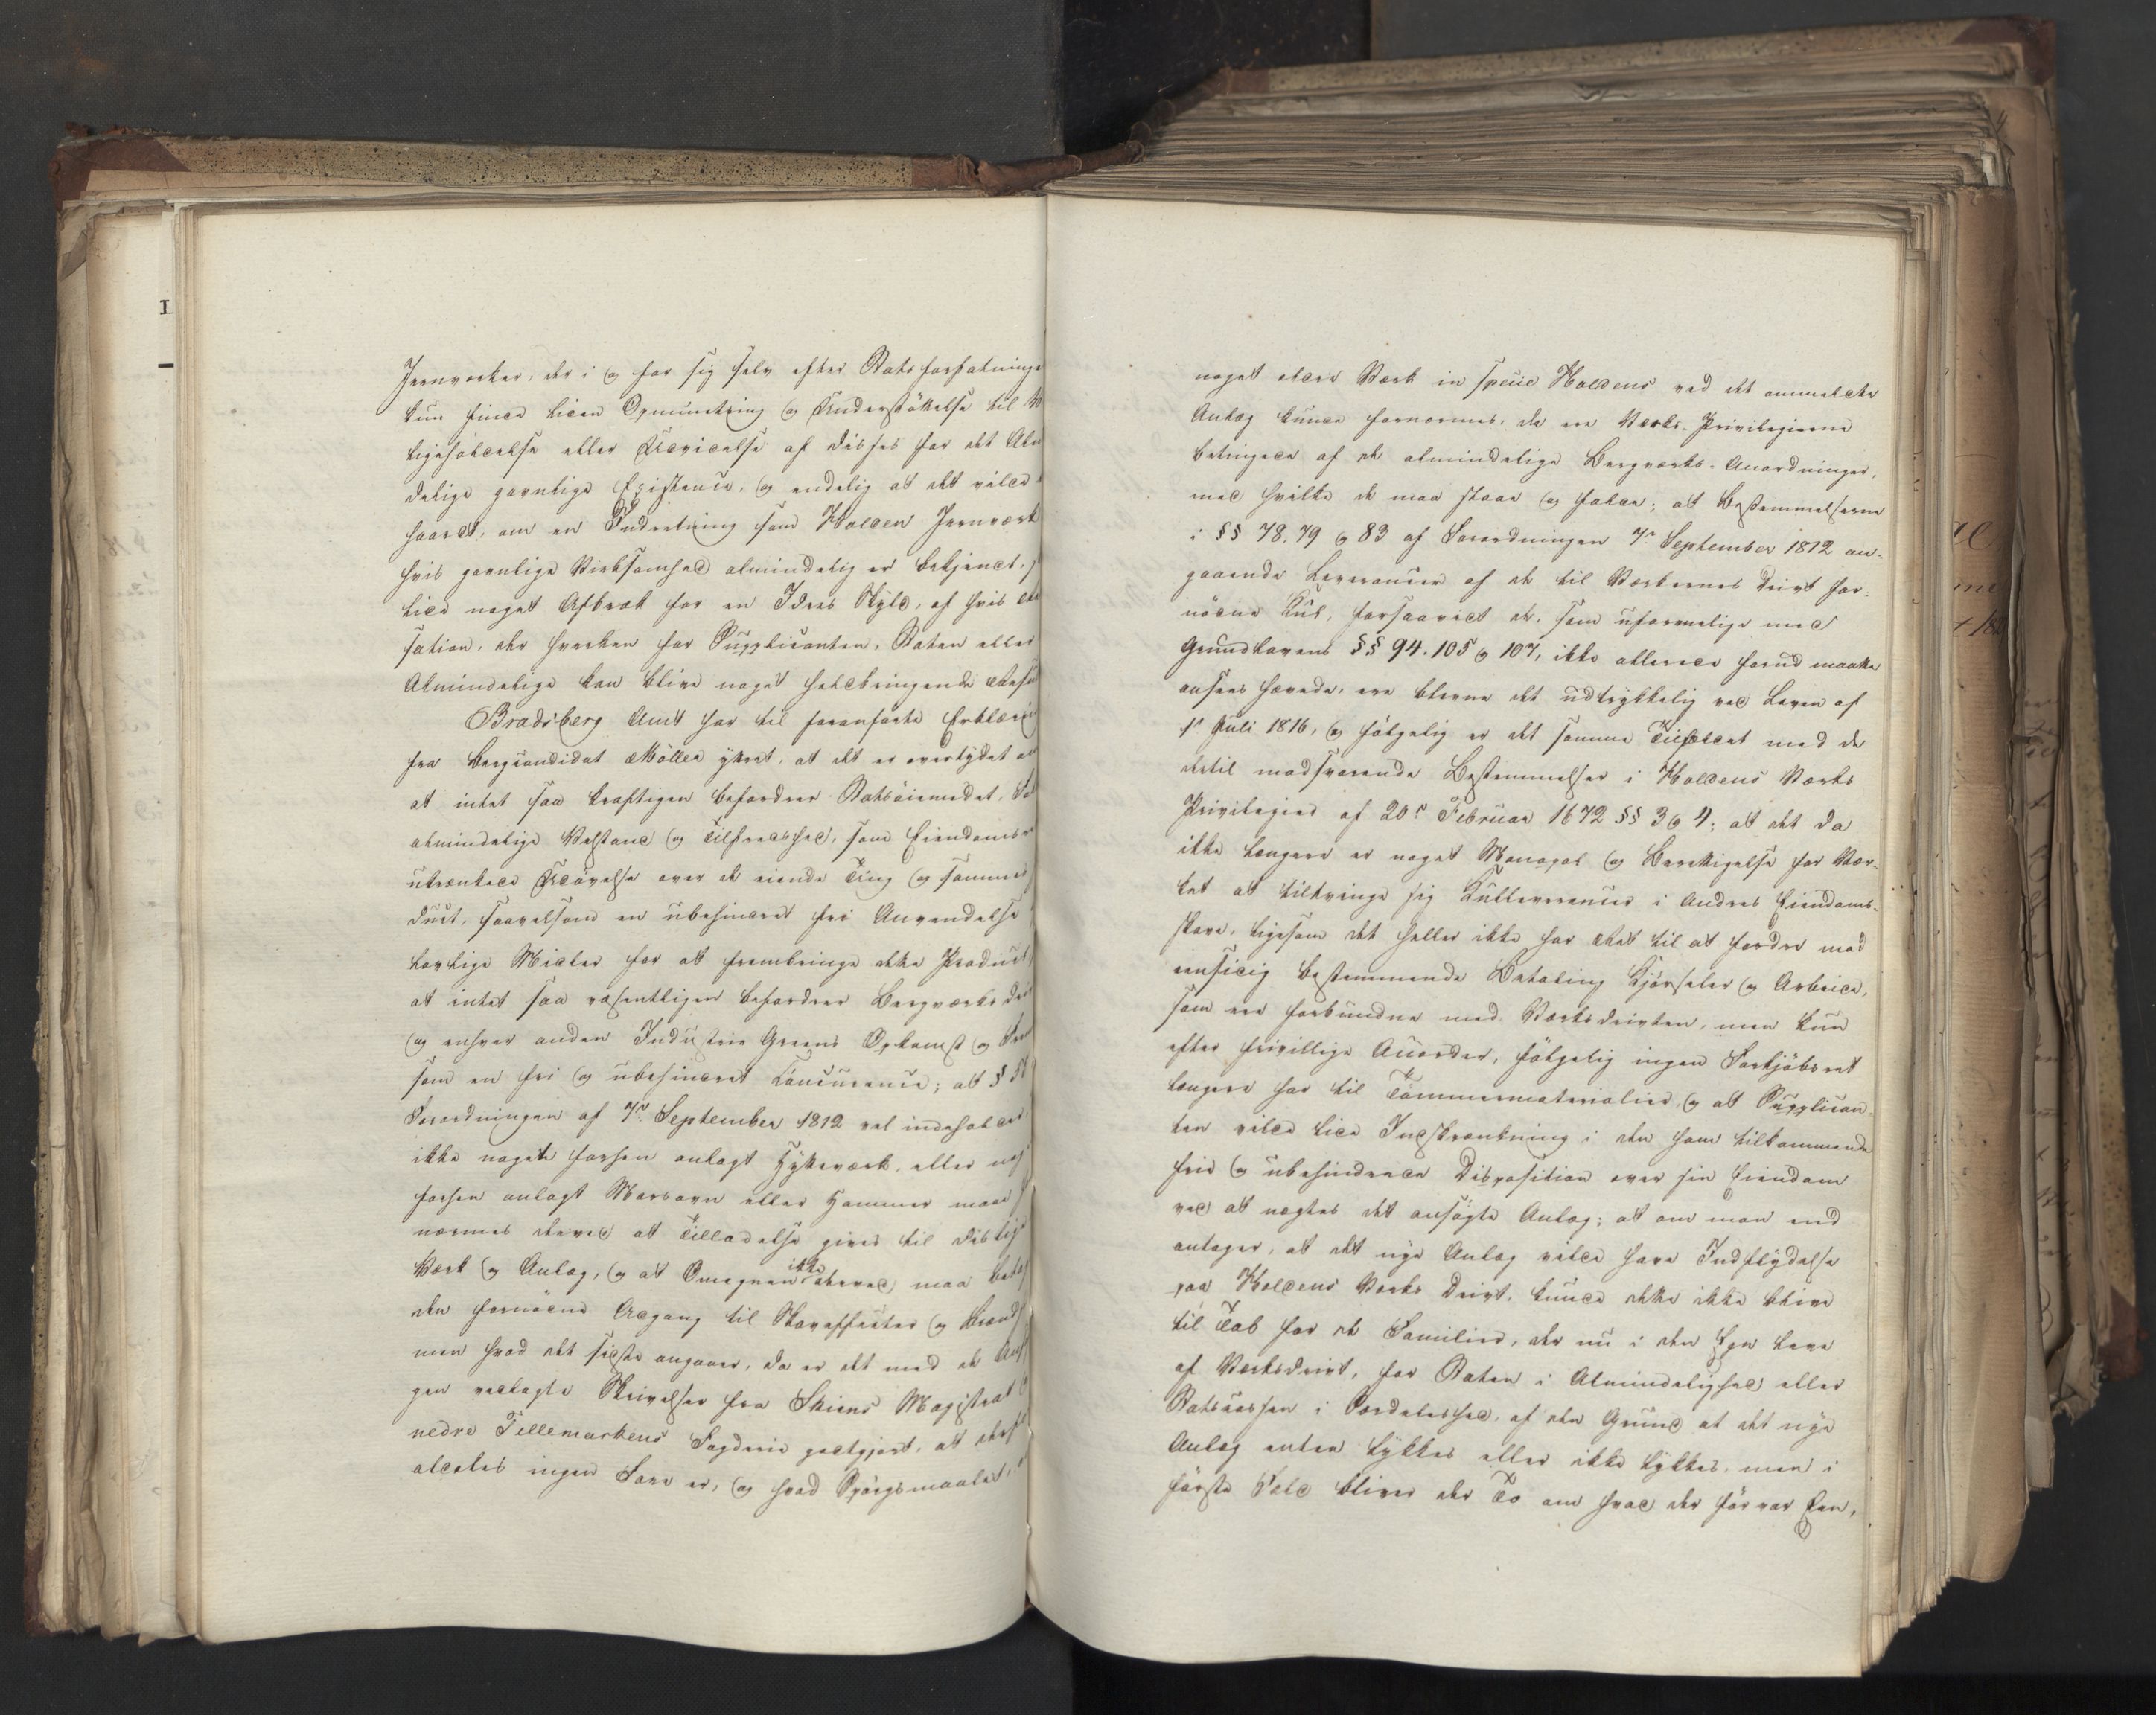 Jernværker, der i og for sig selv efter Statsforfatninge
kun finde liden Opmuntring og Understøttelse til V
ligeholdelse eller Udvidelse af disses for det Alm
delige gavnlige Existence, og endelig at det vilde
haardt, om en Indretning som Holden Jernværk
hvis gavnlige Virksomhed almindelig er bekjendt,
lide noget Afbræk for en Idees Skyld, af hvis
sation, der hverken for Supplicanten, Staten eller
Almindelige kan blive noget heldbringende
Bradsberg Amt har til foranførte Erklæring
fra Bergcandidat Møller yttret, at det er overtydet
at intet saa kraftigen befordrer Statsøiemedet,
almindelige Velstand og Tilfredshed, som Eiendoms
ukrænkede Udøvelse over de eiende Ting og sammes
duct, saavelsom en ubehindret fri Anvendelse
lovlige Midler for at frembringe dette Product,
at intet saa væsentligen befordrer Bergværksdri
og enhver anden Industrie Greens Opkomst og Frem
som en fri og ubehindret Concurence; at §
Forordningen af 7de September 1812 vel indeholder
ikke noget forhen anlagt Hytteværk, eller
forhen anlagt Masovn eller Hammer maae
nærmes derved at Tilladelse gives til deslige
Værk og Anlæg, og at Omegnen ikke derved maa
den fornødne Adgang til Skoveffecter og Brænd
men hvad det sidste angaaer, da er det med de
gen vedlagte Skrivelser fra Skiens Magistrat
nedre Tellemarkens Fogderie godtgjort, at
aldeles ingen Fare er, og hvad Spørgsmaalet,
noget ældre Værk in specie Holdens ved det anmeldte
Anlæg kunde fornærmes, da ere Værks-Privilegierne
betingede af de almindelige Bergværks-Anordninger,
med hvilke de maa staae og falde; at Bestemmelserne
i §§ 78. 79 og 83 af Forordningen 7de September 1812 an-
gaaende Leverancer af de til Værkernes Drivt for-
nødne Kul, forsaavidt de, som uforenelige med
Grundlovens §§ 94. 105 og 107, ikke allerede forud maatte
ansees hævede, ere blevne det udtrykkelig ved Loven af
1ste Juli 1816, og følgelig er det samme Tilfældet med de
dertil modsvarende Bestemmelser i Holdens Værks
Privilegier af 20de Februar 1672 §§ 3 og 4; at det da
ikke længere er noget Monopol og Berettigelse for Vær-
ket at tiltvinge sig Kulleverancer i Andres Eiendoms-
skove, ligesom det heller ikke har Ret til at fordre mod
eensidig bestemmende Betaling Kjørseler og Arbeide,
som ere forbundne med Værksdrivten, men kun
efter frivillige Accorder, følgelig ingen Forkjøbsret
længere har til Tømmermaterialier, og at Supplican-
ten vilde lide Indskrænkning i den ham tilkommende
frie og ubehindrede Disposition over sin Eiendom
ved at nægtes det ansøgte Anlæg; at om man end
antager, at det nye Anlæg vilde have Indflydelse
paa Holdens Værks Drivt, kunde dette ikke blive
til Tab for de Familier, der nu i den Egn leve
af Værksdrivt, for Staten i Almindelighed eller
Statscassen i Særdeleshed, af den Grund at det nye
Anlæg enten lykkes eller ikke lykkes, men i
første Fald bliver der To om hvad der før var Een,